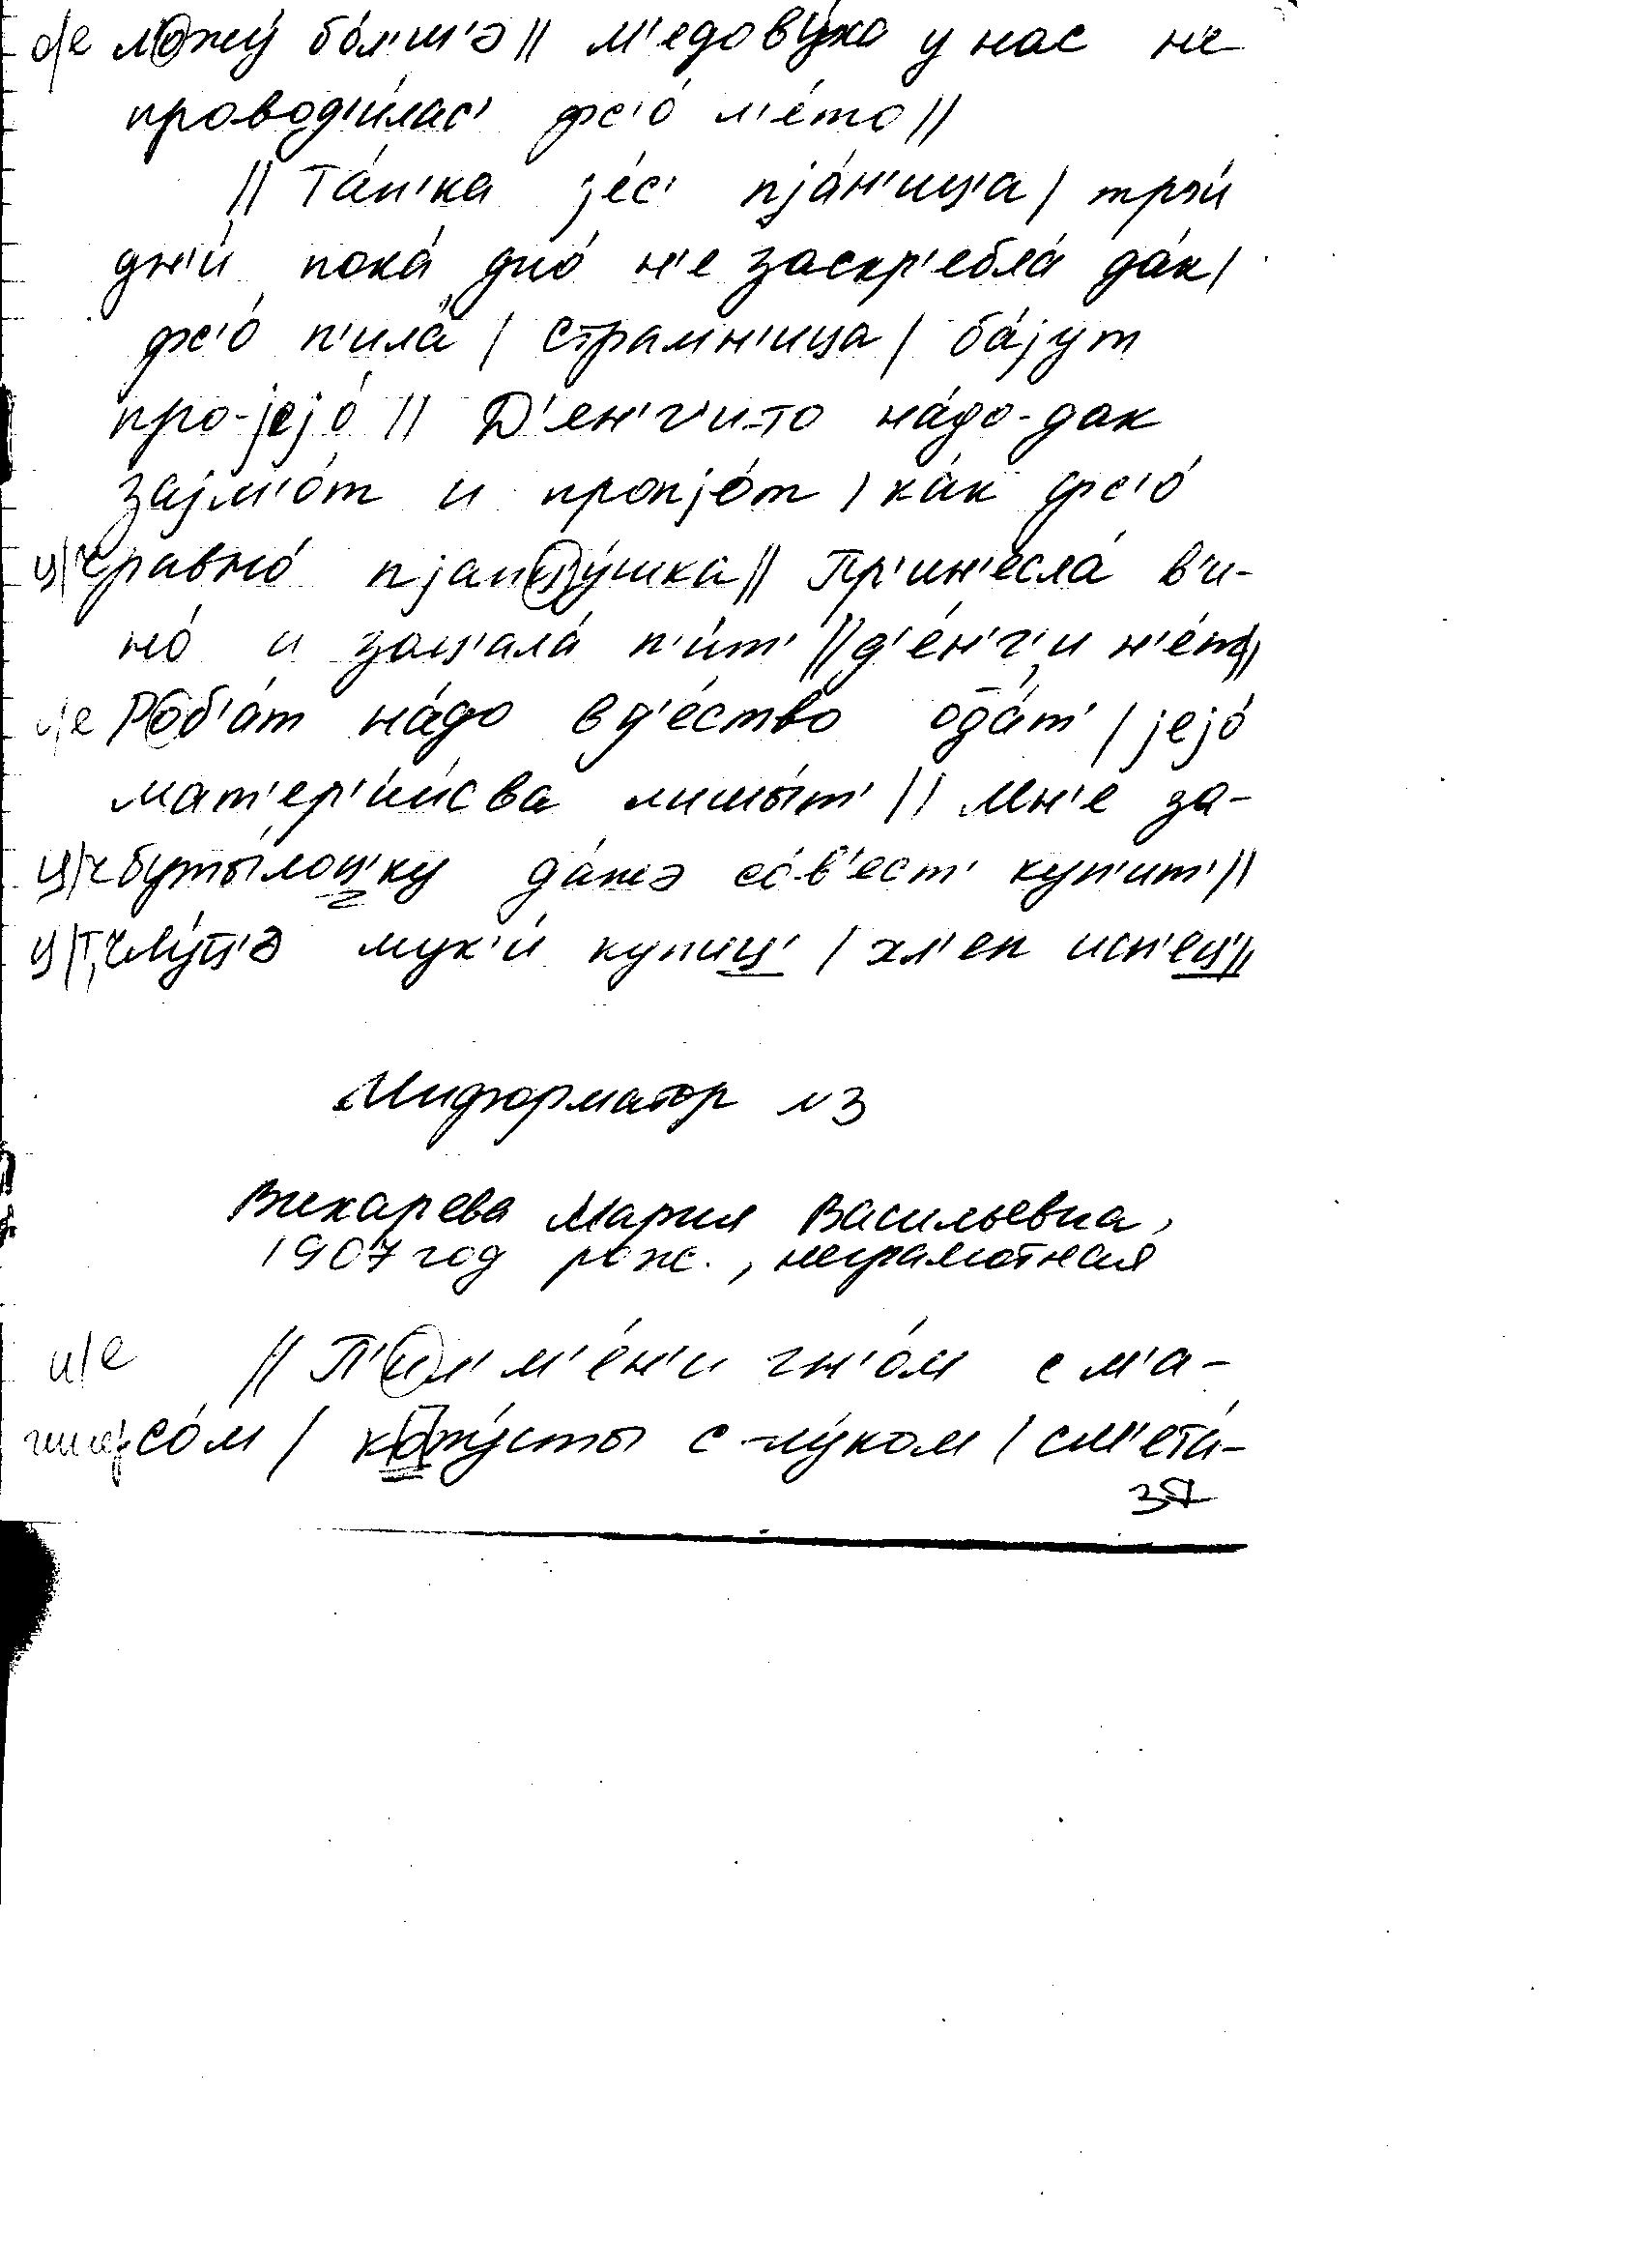 о/е л'ожу́ бо́л'ш'э // м'едову́ха у нас не
проводи́лас' фс'о́ л'е́то //
// Та́н'ка јес' пја́н'иц'а / три́
дн'и́ пока́ дно́ н'е заскр'ебла́ да́к /
фс'о́ п'ила́ / страмн'ица / ба́јут
про-јејо́ // Д'ен'г'и-то на́до-дак
зајм'о́т и пропјо́т / ка́к фс'о́
ц/ч равно́ пјанч'у́шка // Пр'ин'есла́ в'и-
но́ и зац'ала́ п'и́т' // д'е́н'г'и н'е́т //
Роб'а́т на́до в д'е́ство ода́т' / јејо́
мат'ер'и́нсва лишы́т' // Мн'е за-
ц/ч бутылоц'ку да́жэ со́в'ест' куп'ит' //
ц/т,ч лу́ц'э мук'и́ купиц' / хл'еп исп'ец' //
Информатор №3
Вихарева Мария Васильевна,
1907 год рож., неграмотная
и/е // П'ил'м'е́н'и гн'о́м с м'а-
со́м / копу́сты с лу́ком / см'ета́-
37